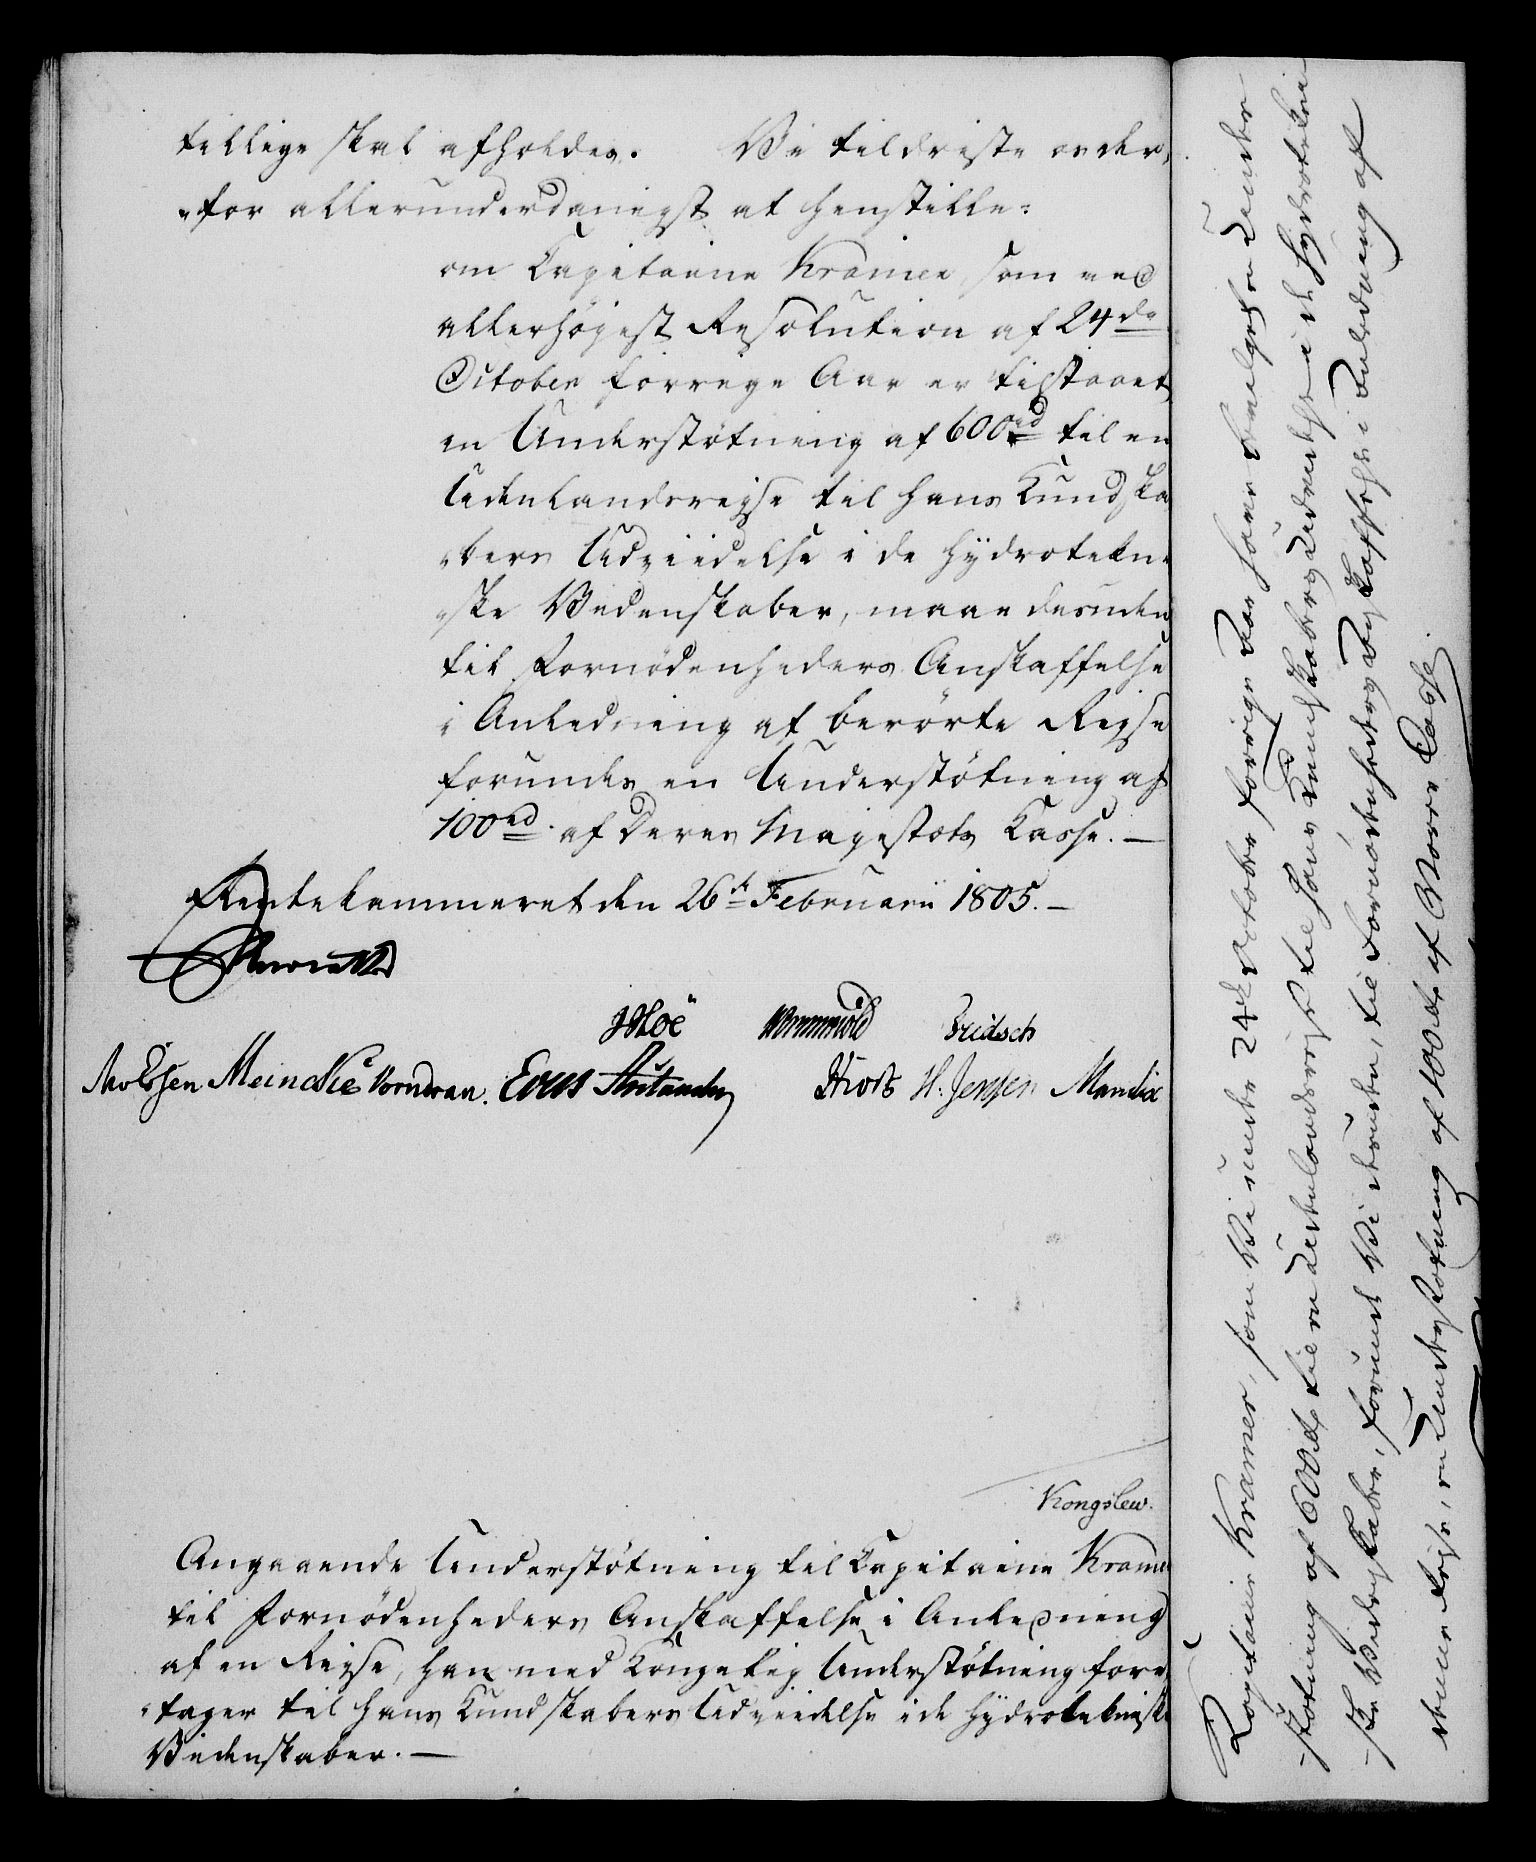 tillige skal afholdes. Vi tildriste os der,
„for allerunderdanigst at henstille:
om Capitaine Kramer, som ved
allerhöjest Resolution af 24de
October forrige Aar er tilstaaet
en Understötning af 600rd til en
Udenlandsrejse til hans Kundska
„bers Udviidelse i de hÿdrotekni
„ske Videnskaber, maae desuden
til Fornödenheders Anskaffelse
i Anledning af berörte Rejse
forundes en Understötning af
100rd. af Deres Majestæts Casse. —
Rentekammeret den 26de Februarii 1805. —
Moe Wormskiold Fridsch
Meincke Vorndran. Hiort H. Jensen Mandix
Kongslew.
Angaaende Understötning til Capitaine Krame
til Fornödenheders Anskaffelse i Anledning
af en Rejse, han med Kongelig Understötning fore
„tager til hans Kundskabers Udviidelse i de hÿdrotekniske
Videnskaber. —
Capitain Kramer, som Vi under 24de October forrige Aar have bevilget en Under
-stötning af 600 rd til en Udenlandsreise til hans Kundskabers Udvidelse i de hydrotekni
-ske Videnskaber, forunde Vi desuden, til Fornödenheders Anskaffelse i Anledning af
denne Reise, en Understötning af 100 rd af Vores Casse.